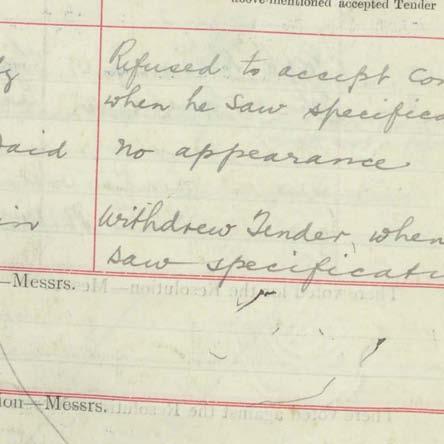 above-mentioned accepted Tender
Refused to accept Con
when he saw specifica
said no appearance
in Withdrew Tender, when
saw specificati
—Messrs.
There voted for the Resolution—Mess
ion—Messrs.
There voted against the Resolu